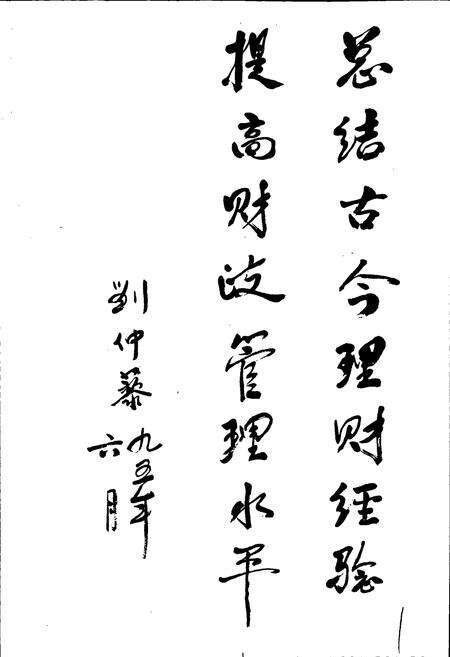 总结古今理财经验
提高财政管理水平
刘仲藜
九五年
六月